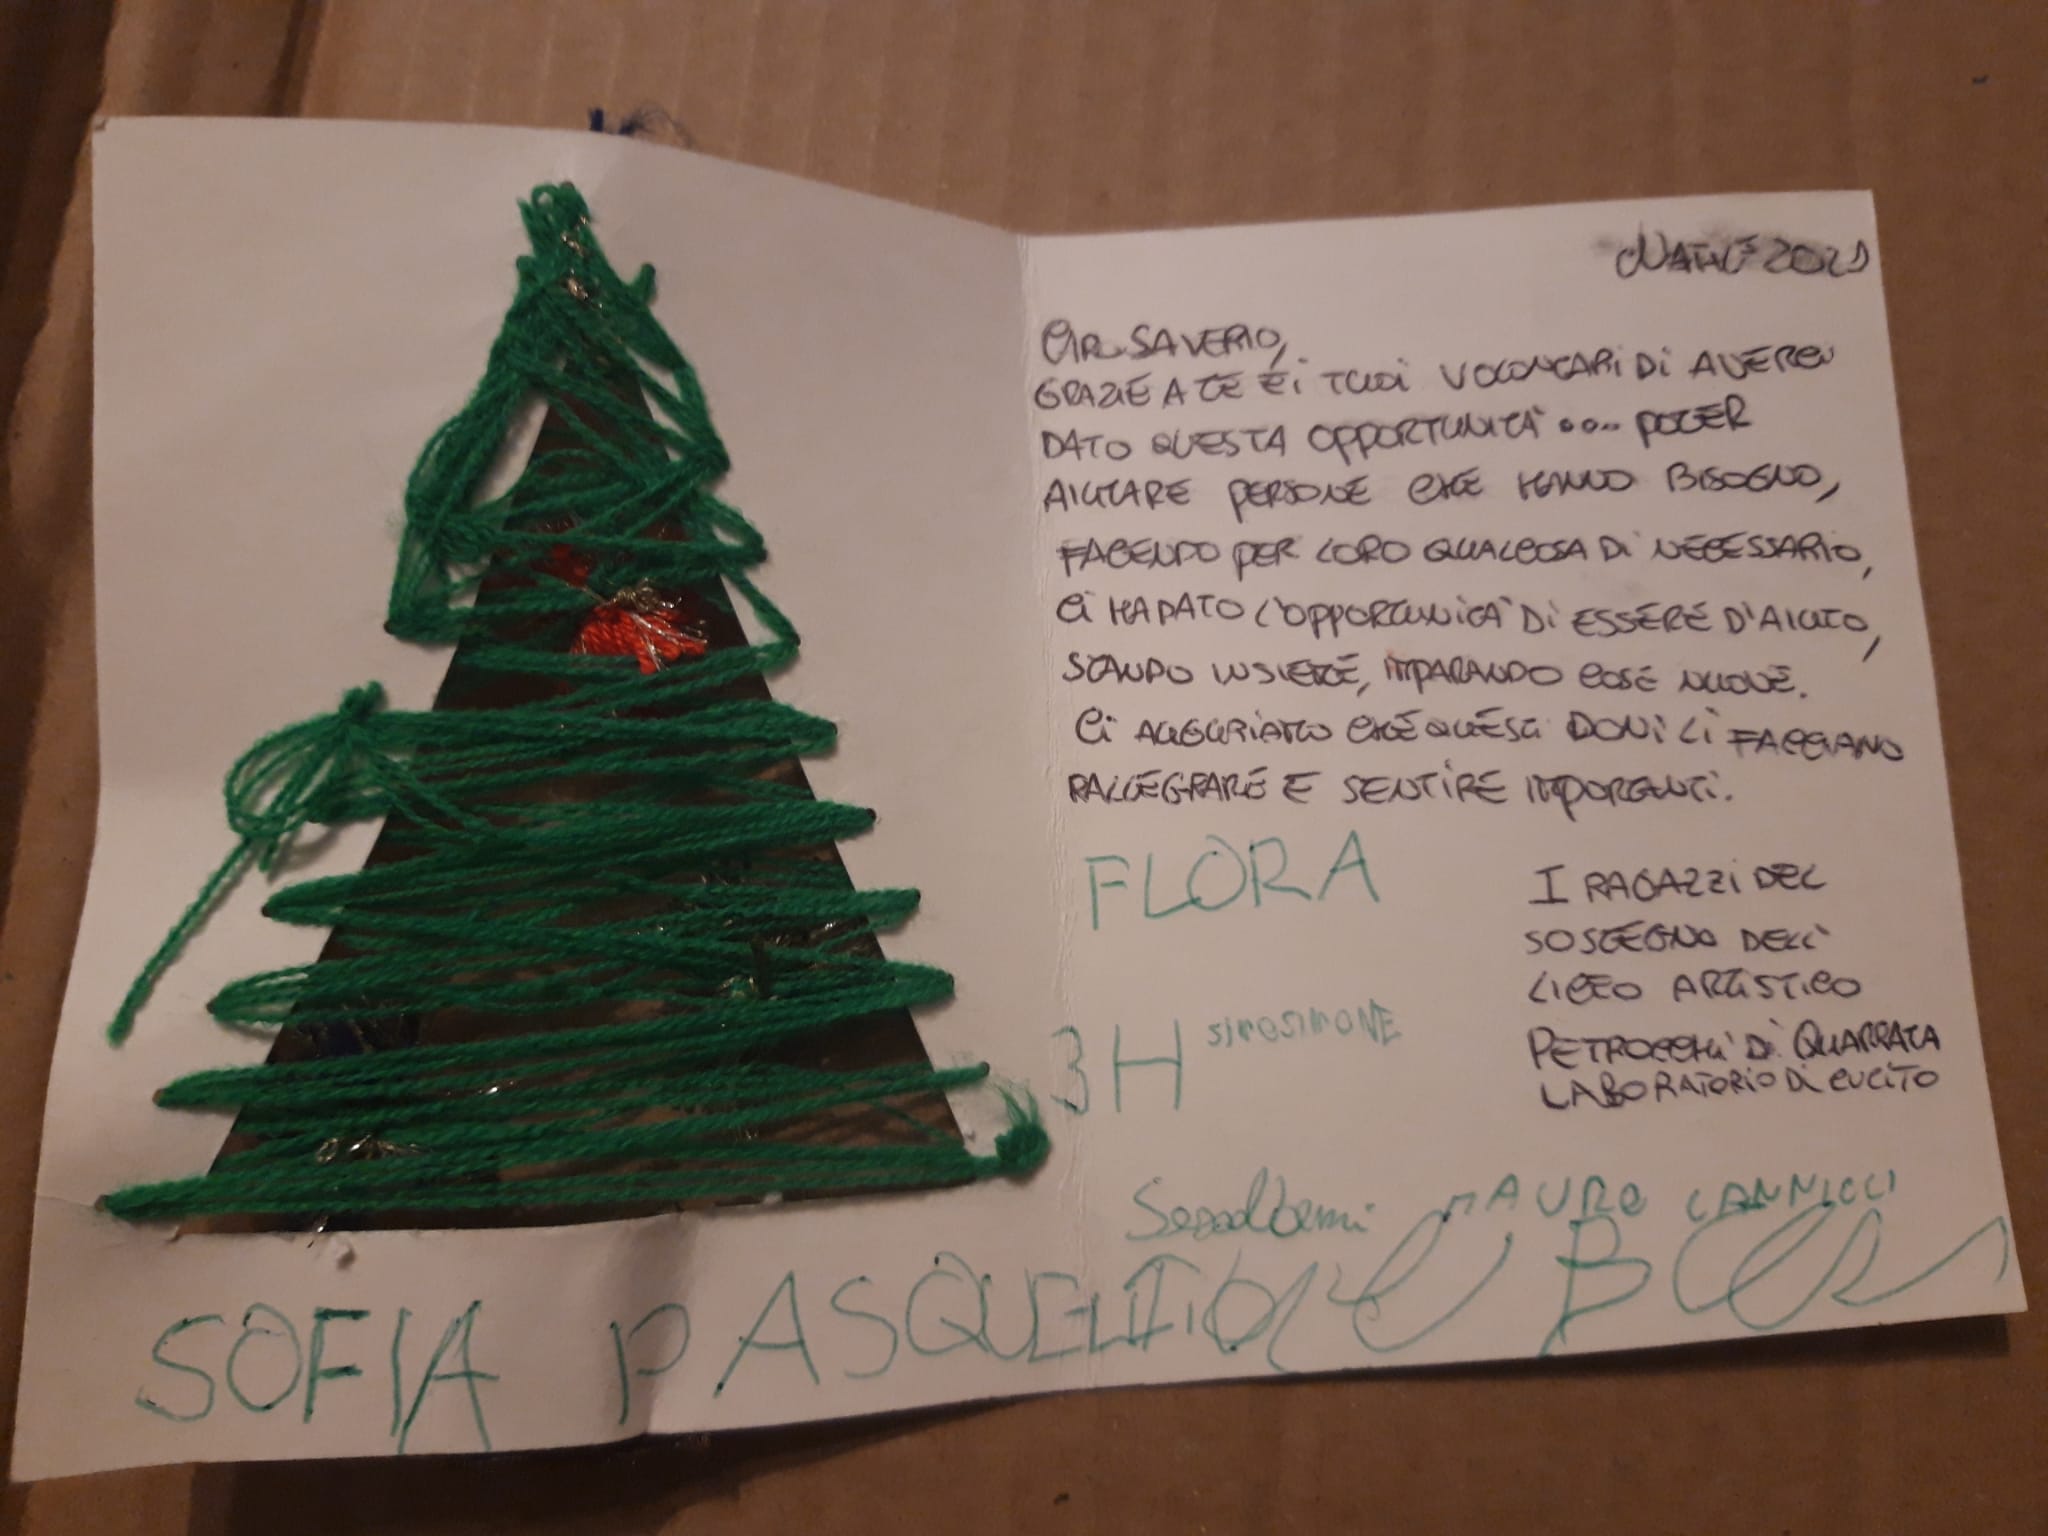 NATALE 2021
CIAO SAVERIO,
GRAZIE A TE E I TUOI VOLONTARI DI AVERCI
DATO QUESTA OPPORTUNITÀ .... POTER
AIUTARE PERSONE CHE HANNO BISOGNO,
FACENDO PER LORO QUALCOSA DI NECESSARIO,
CI HA DATO L'OPPORTUNITÀ DI ESSERE D'AIUTO,
STANDO INSIEME, IMPARANDO COSE NUOVE.
CI AUGURIAMO CHE QUESTI DONI LI FACCIANO
RALLEGRARE E SENTIRE IMPORTANTI.
FLORA
I RAGAZZI DEL
SOSTEGNO DELL'
LICEO ARTISTICO
PETROCCHI DI QUARRATA
LABORATORIO DI CUCITO
3H SIMOSIMONE
MAURO IANNUCCI
SOFIA